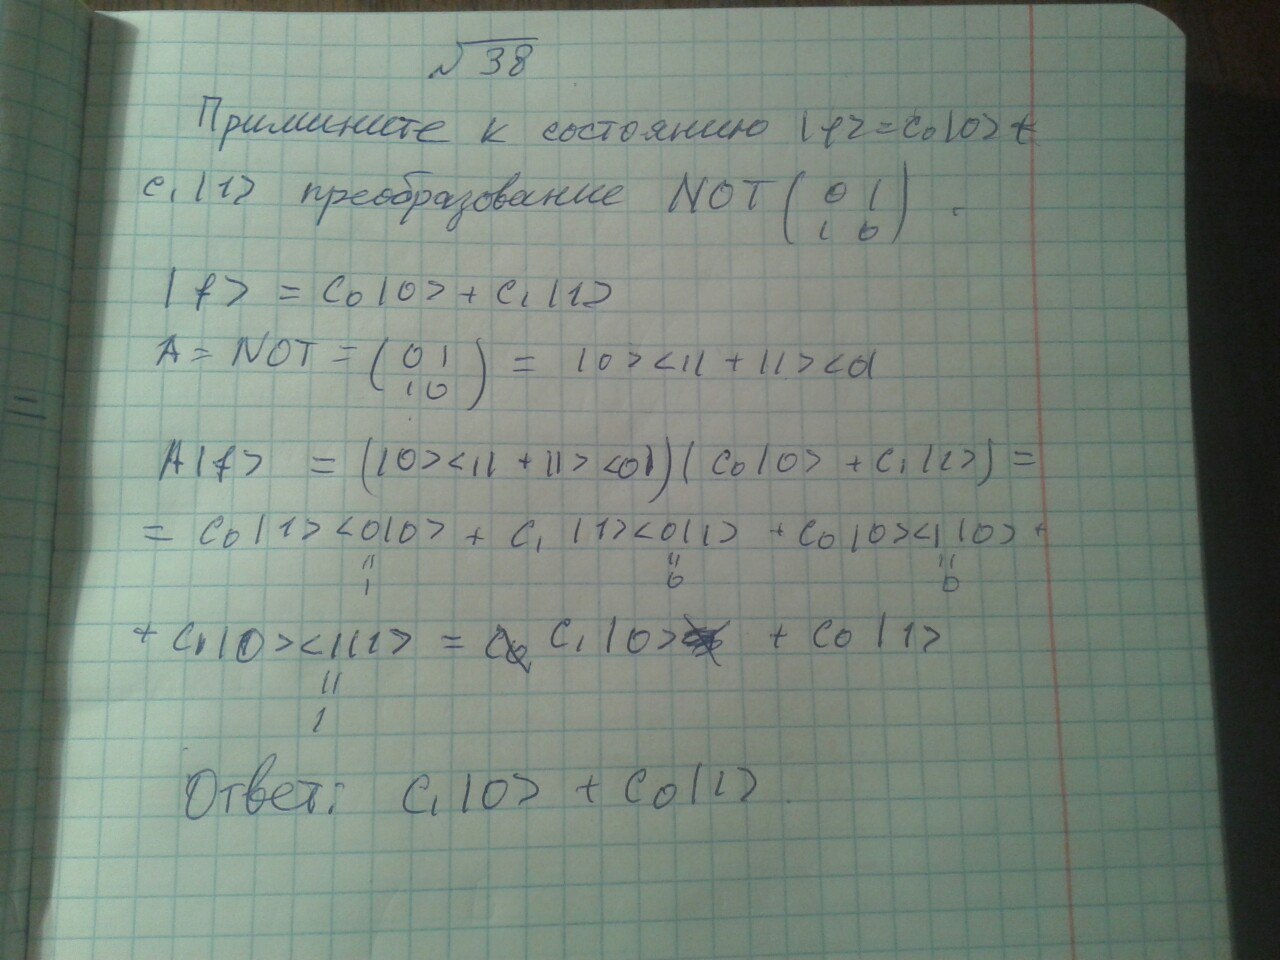 √38
Примините к состоянию |f> = c₀|0> +
c₁|1> преобразование NOT (0 1
1 0).
|f> = c₀|0> + c₁|1>
A = NOT = (0 1
1 0) = |0><1| + |1><0|
A|f> = (|0><1| + |1><0|)(c₀|0> + c₁|1>) =
= c₀|1><0|0> + c₁|1><0|1> + c₀|0><1|0> +
" " "
1 0 0
+ c₁|0><1|1> = c₁|0> + c₀|1>
"
1
Ответ: c₁|0> + c₀|1>.